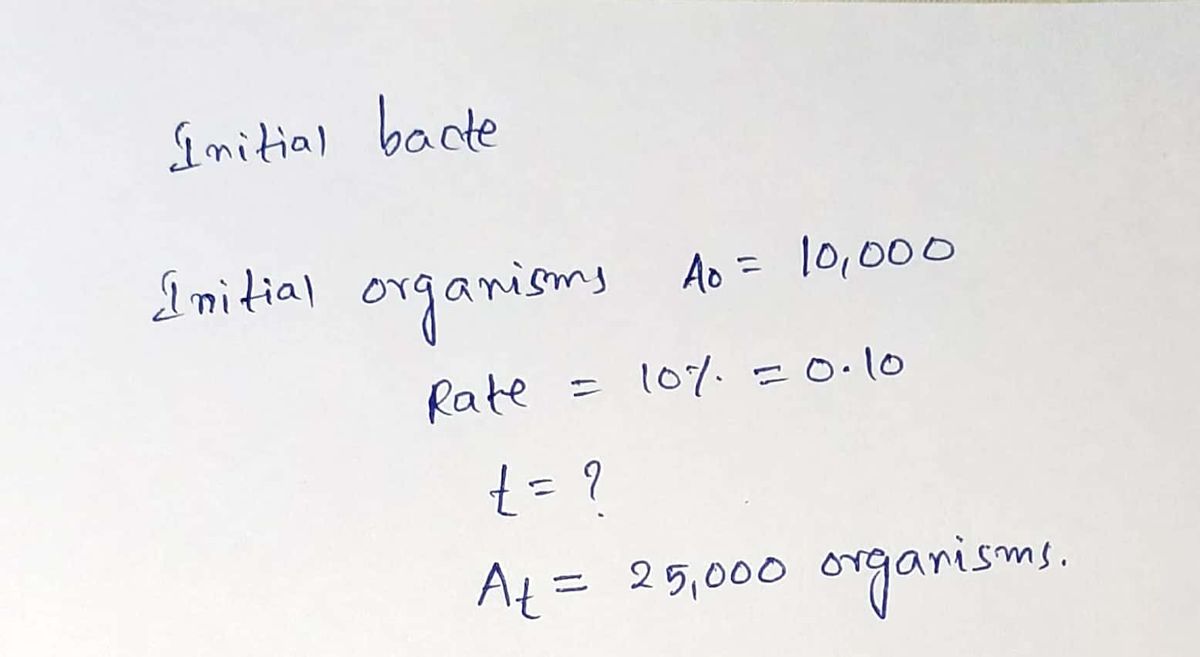 Initial bacte
Initial organisms A0 = 10,000
Rate = 10%. = 0.10
t = ?
At = 25,000 organisms.